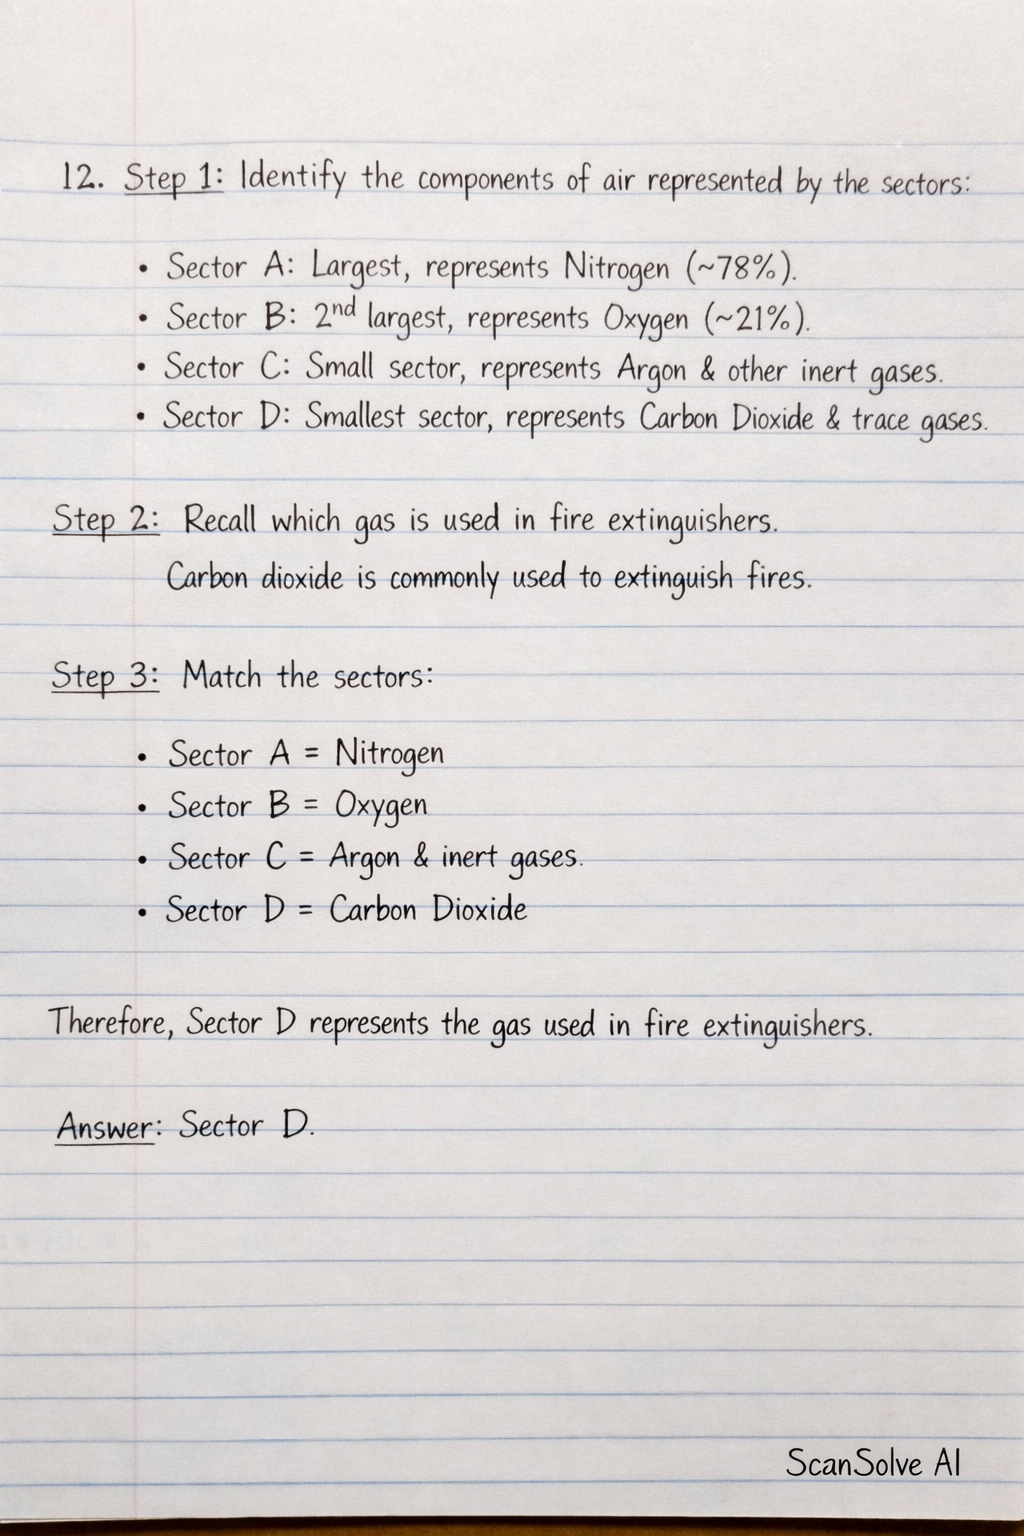 12. Step 1: Identify the components of air represented by the sectors:
• Sector A: Largest, represents Nitrogen (~78%).
• Sector B: 2nd largest, represents Oxygen (~21%).
• Sector C: Small sector, represents Argon & other inert gases.
• Sector D: Smallest sector, represents Carbon Dioxide & trace gases.
Step 2: Recall which gas is used in fire extinguishers.
Carbon dioxide is commonly used to extinguish fires.
Step 3: Match the sectors:
• Sector A = Nitrogen
• Sector B = Oxygen
• Sector C = Argon & inert gases.
• Sector D = Carbon Dioxide
Therefore, Sector D represents the gas used in fire extinguishers.
Answer: Sector D.
ScanSolve AI